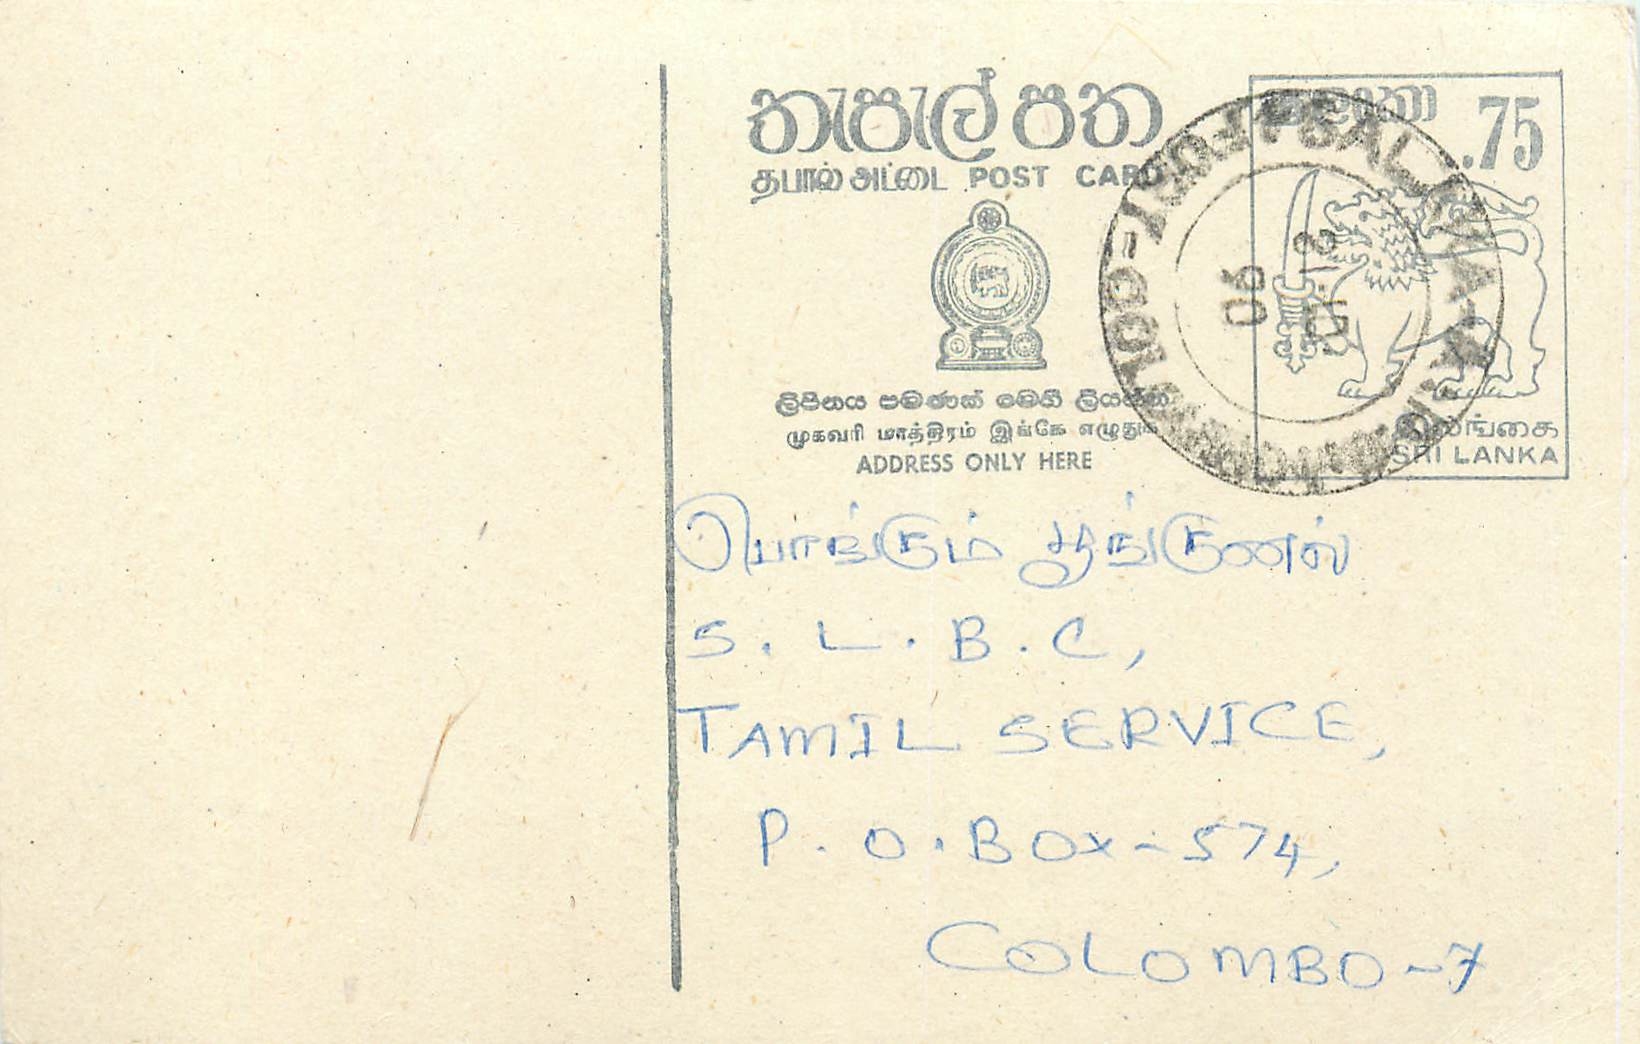 තැපැල් පත
தபால் அட்டை POST CARD
ලිපිනය පමණක් මෙහි ලියන්න
முகவரி மாத்திரம் இங்கே எழுதுக
ADDRESS ONLY HERE
ශ්‍රී ලංකා .75
இலங்கை
SRI LANKA
90
பொங்கும் பூங்குணல்
S. L. B. C,
TAMIL SERVICE,
P. O. BOX - 574,
COLOMBO - 7